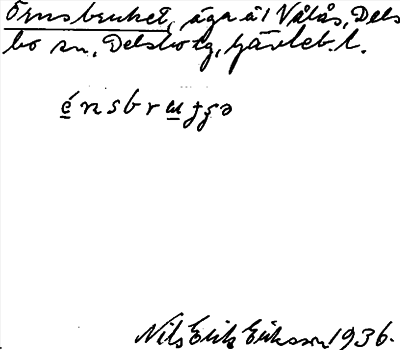 Örnsbruket, äga ål Vålås, Dels
bo sn, Delsbo tg, Gävleb. l.
énsbruʒʒə
Nils Erik Eriksson 1936.